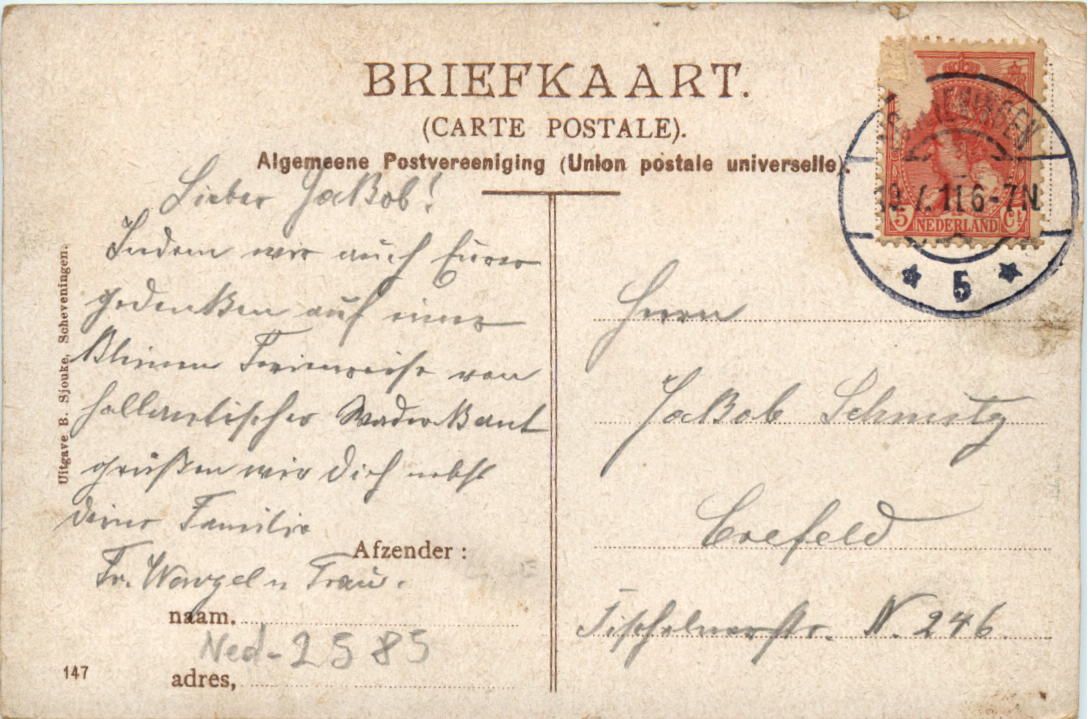 BRIEFKAART.
(CARTE POSTALE).
Algemeene Postvereeniging (Union postale universelle).
NEDERLAND
5 Ct
19.7.11 6-7N
5
Lieber Jakob!
Indem wir auch Eurer
gedenken auf einer
kleinen Ferienreise von
grüßen wir Dich nebst
deiner Familie
Fr. u Frau.
Afzender:
naam,
Ned-2585
adres,
147
Uitgave B. Sjouke, Scheveningen.
Herrn
Jakob Schmitz
Crefeld
N. 246.